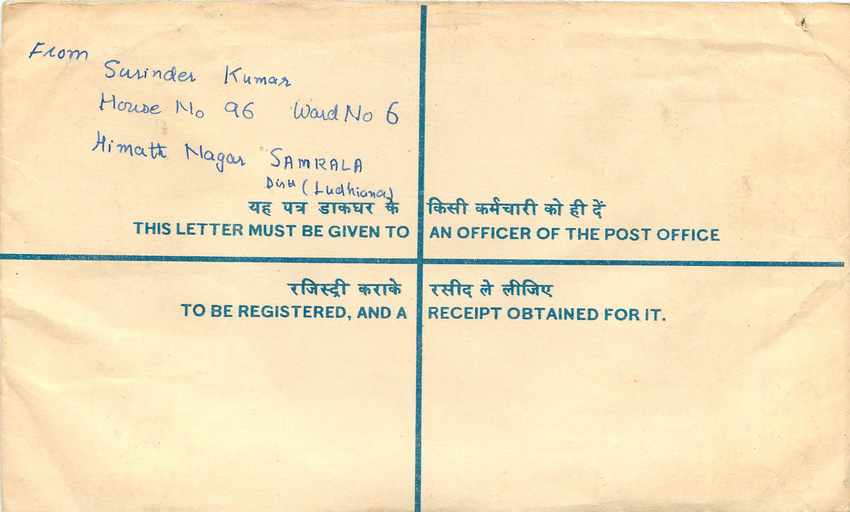 From
Surinder Kumar
House No 96 Ward No 6
Himath Nagar SAMRALA
Distt (Ludhiana)
यह पत्र डाकघर के किसी कर्मचारी को ही दें
THIS LETTER MUST BE GIVEN TO AN OFFICER OF THE POST OFFICE
रजिस्ट्री कराके रसीद ले लीजिए
TO BE REGISTERED, AND A RECEIPT OBTAINED FOR IT.